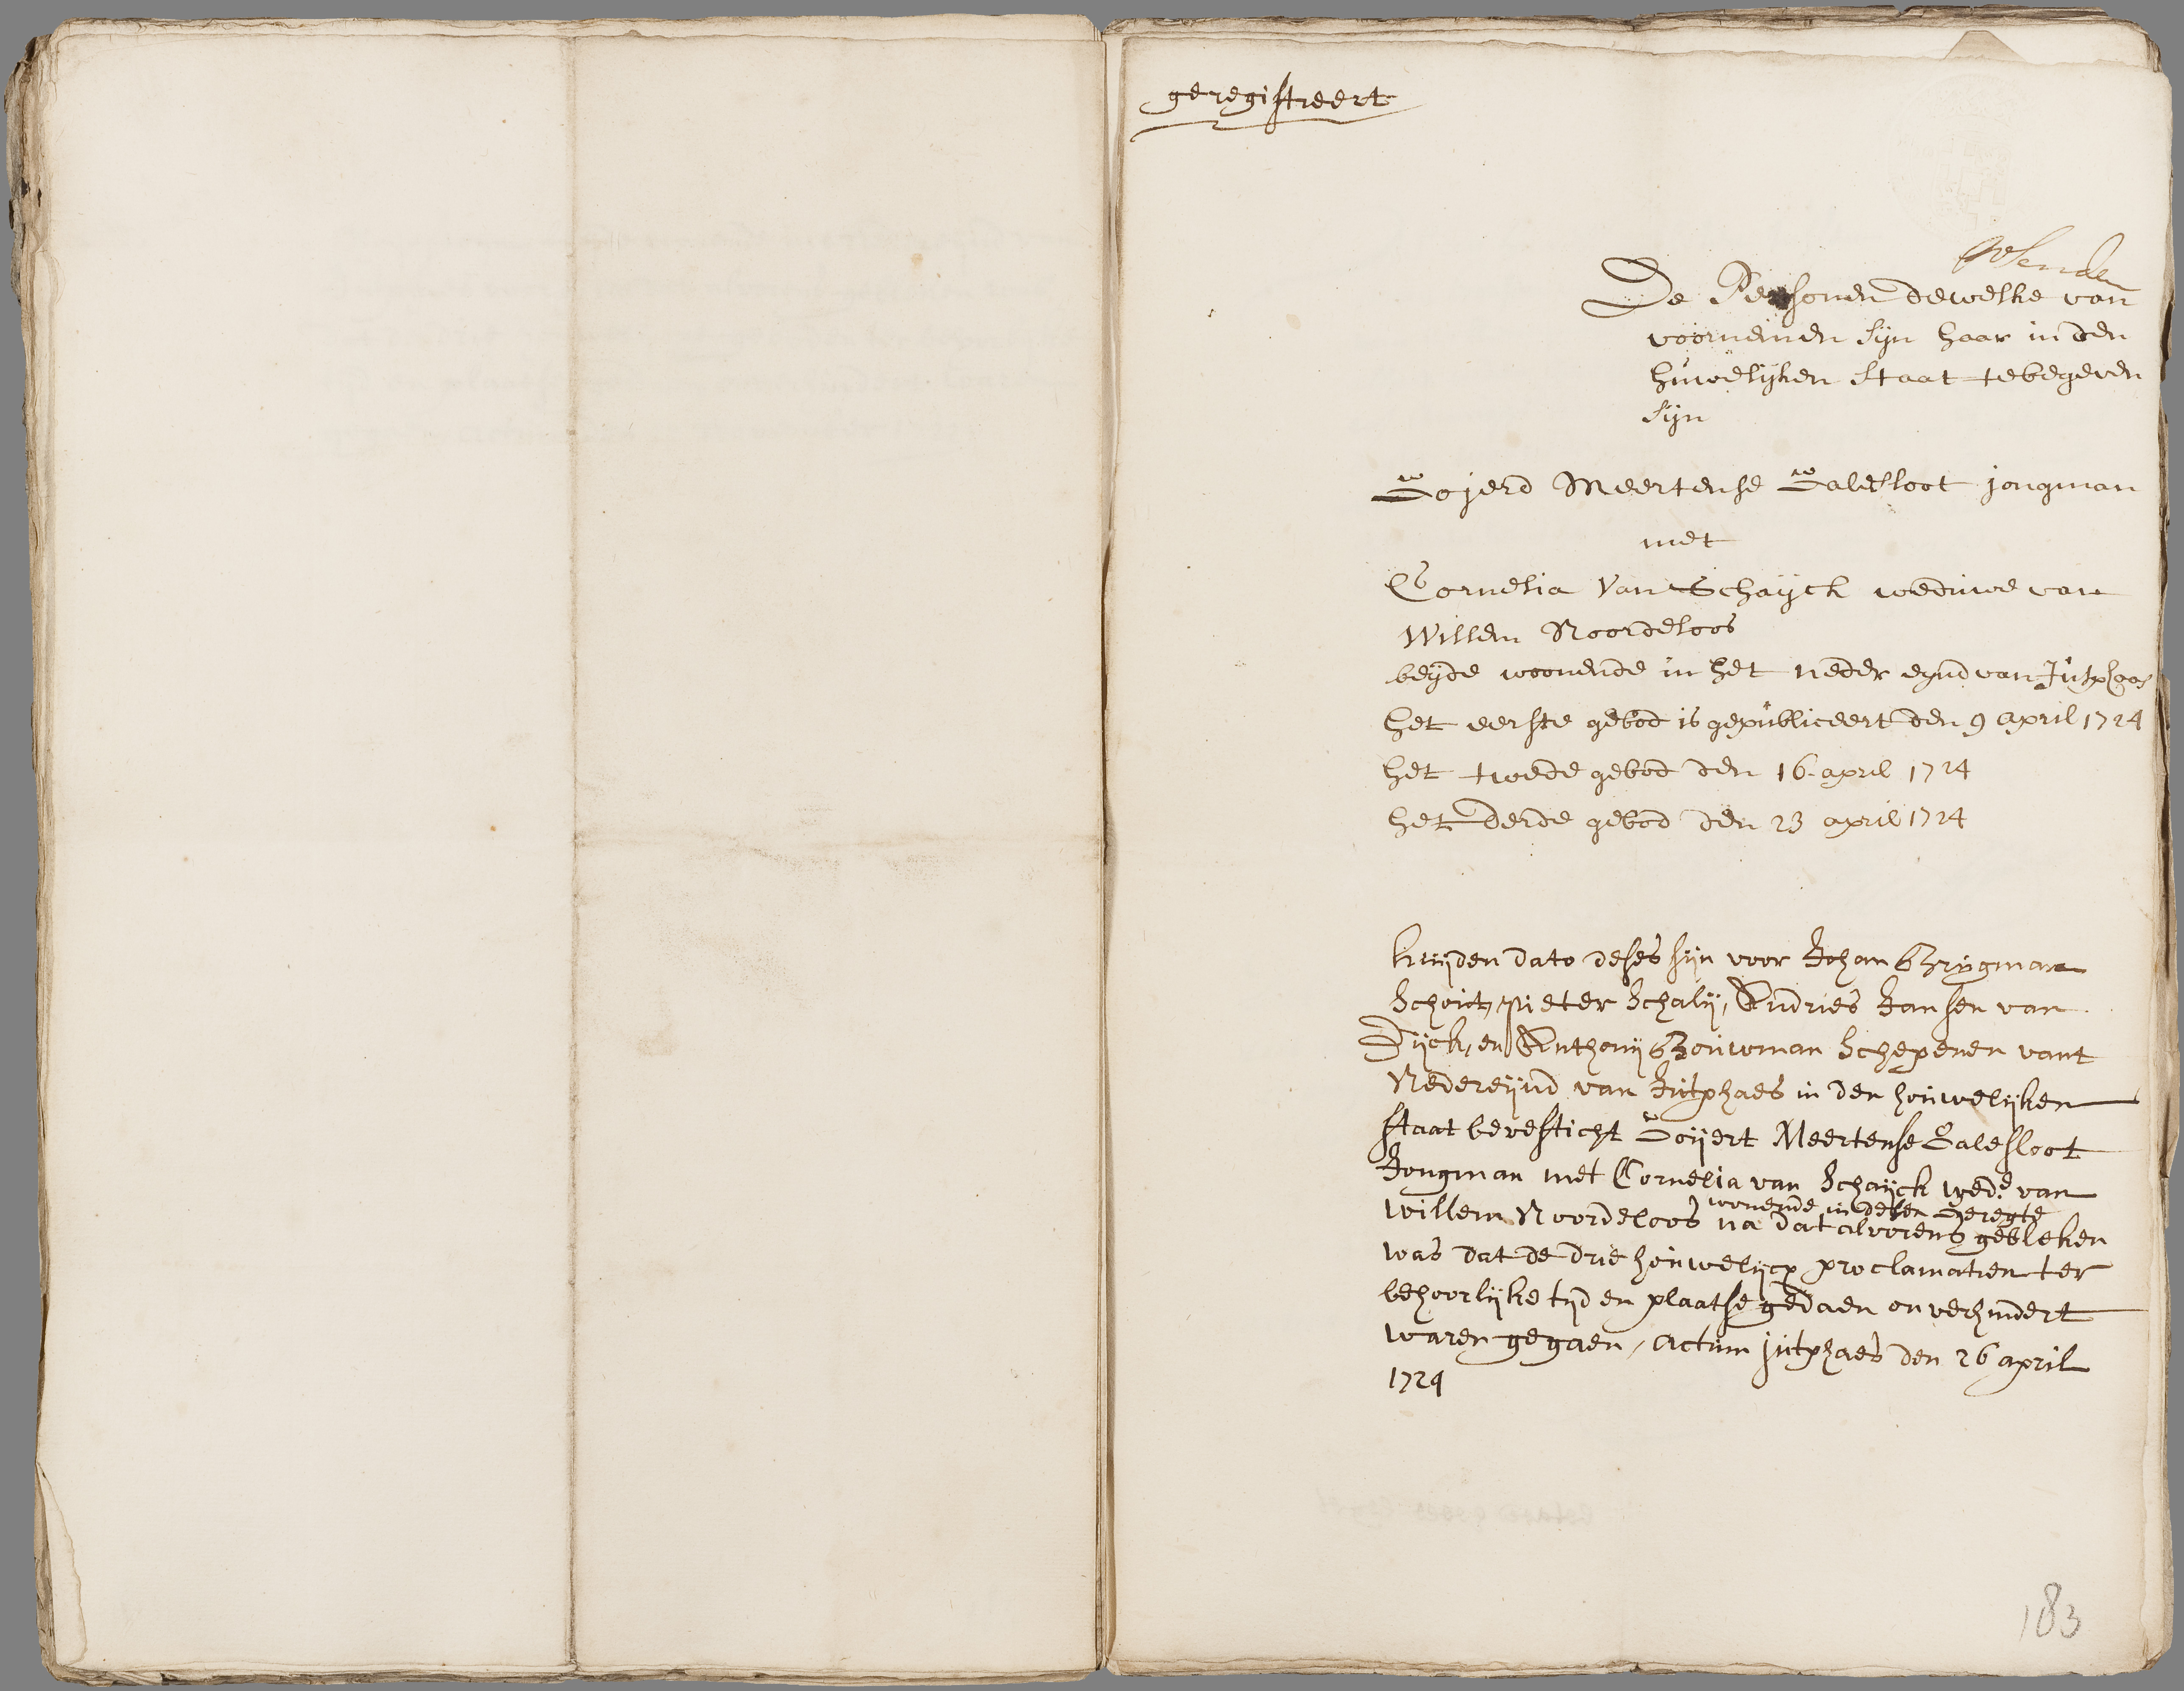 geregistreert
De Personen dewelke van
voornemen sijn haar in den
huwelijken staat te begeven
sijn
Gojerd Meertense Galesloot jongman
met
Cornelia Van Schayck weduwe van
Willem Noordeloos
beyde woonende in het neder eynd van Jutphaas
het eerste gebod is gepubliceert den 9 april 1724
het twede gebod den 16 april 1724
het derde gebod den 23 april 1724
huijden dato deses sijn voor Johan Brugman
Schout, Pieter Schalij, Andries Jansen van
Dijck, en Anthonij Bouwman Schepenen vant
Nedereijnd van Jutphaes in den houwelijken
staat bevesticht Goijert Meertense Galesloot
Jongman met Cornelia van Schaijck wed.e van
wonende in desen Geregte
Willem Noordeloos na dat alvorens gebleken
was dat de drie houwelijcx proclamatien ter
behoorlijke tijd en plaatse gedaen onverhindert
waren gegaen, Actum jutphaes den 26 april
1724
183